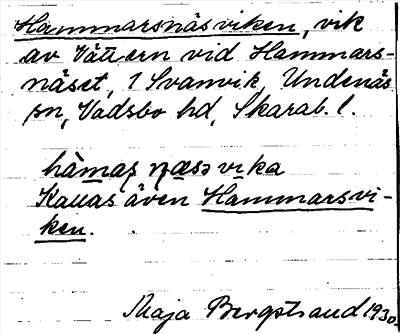 Hammarsnäsviken, vik
av Vättern vid Hammars-
näset, 1 Svanvik, Undenäs
sn, Vadsbo hd, Skarab. l.
Kallas även Hammarsvi-
ken.
Maja Bergstrand 1930.